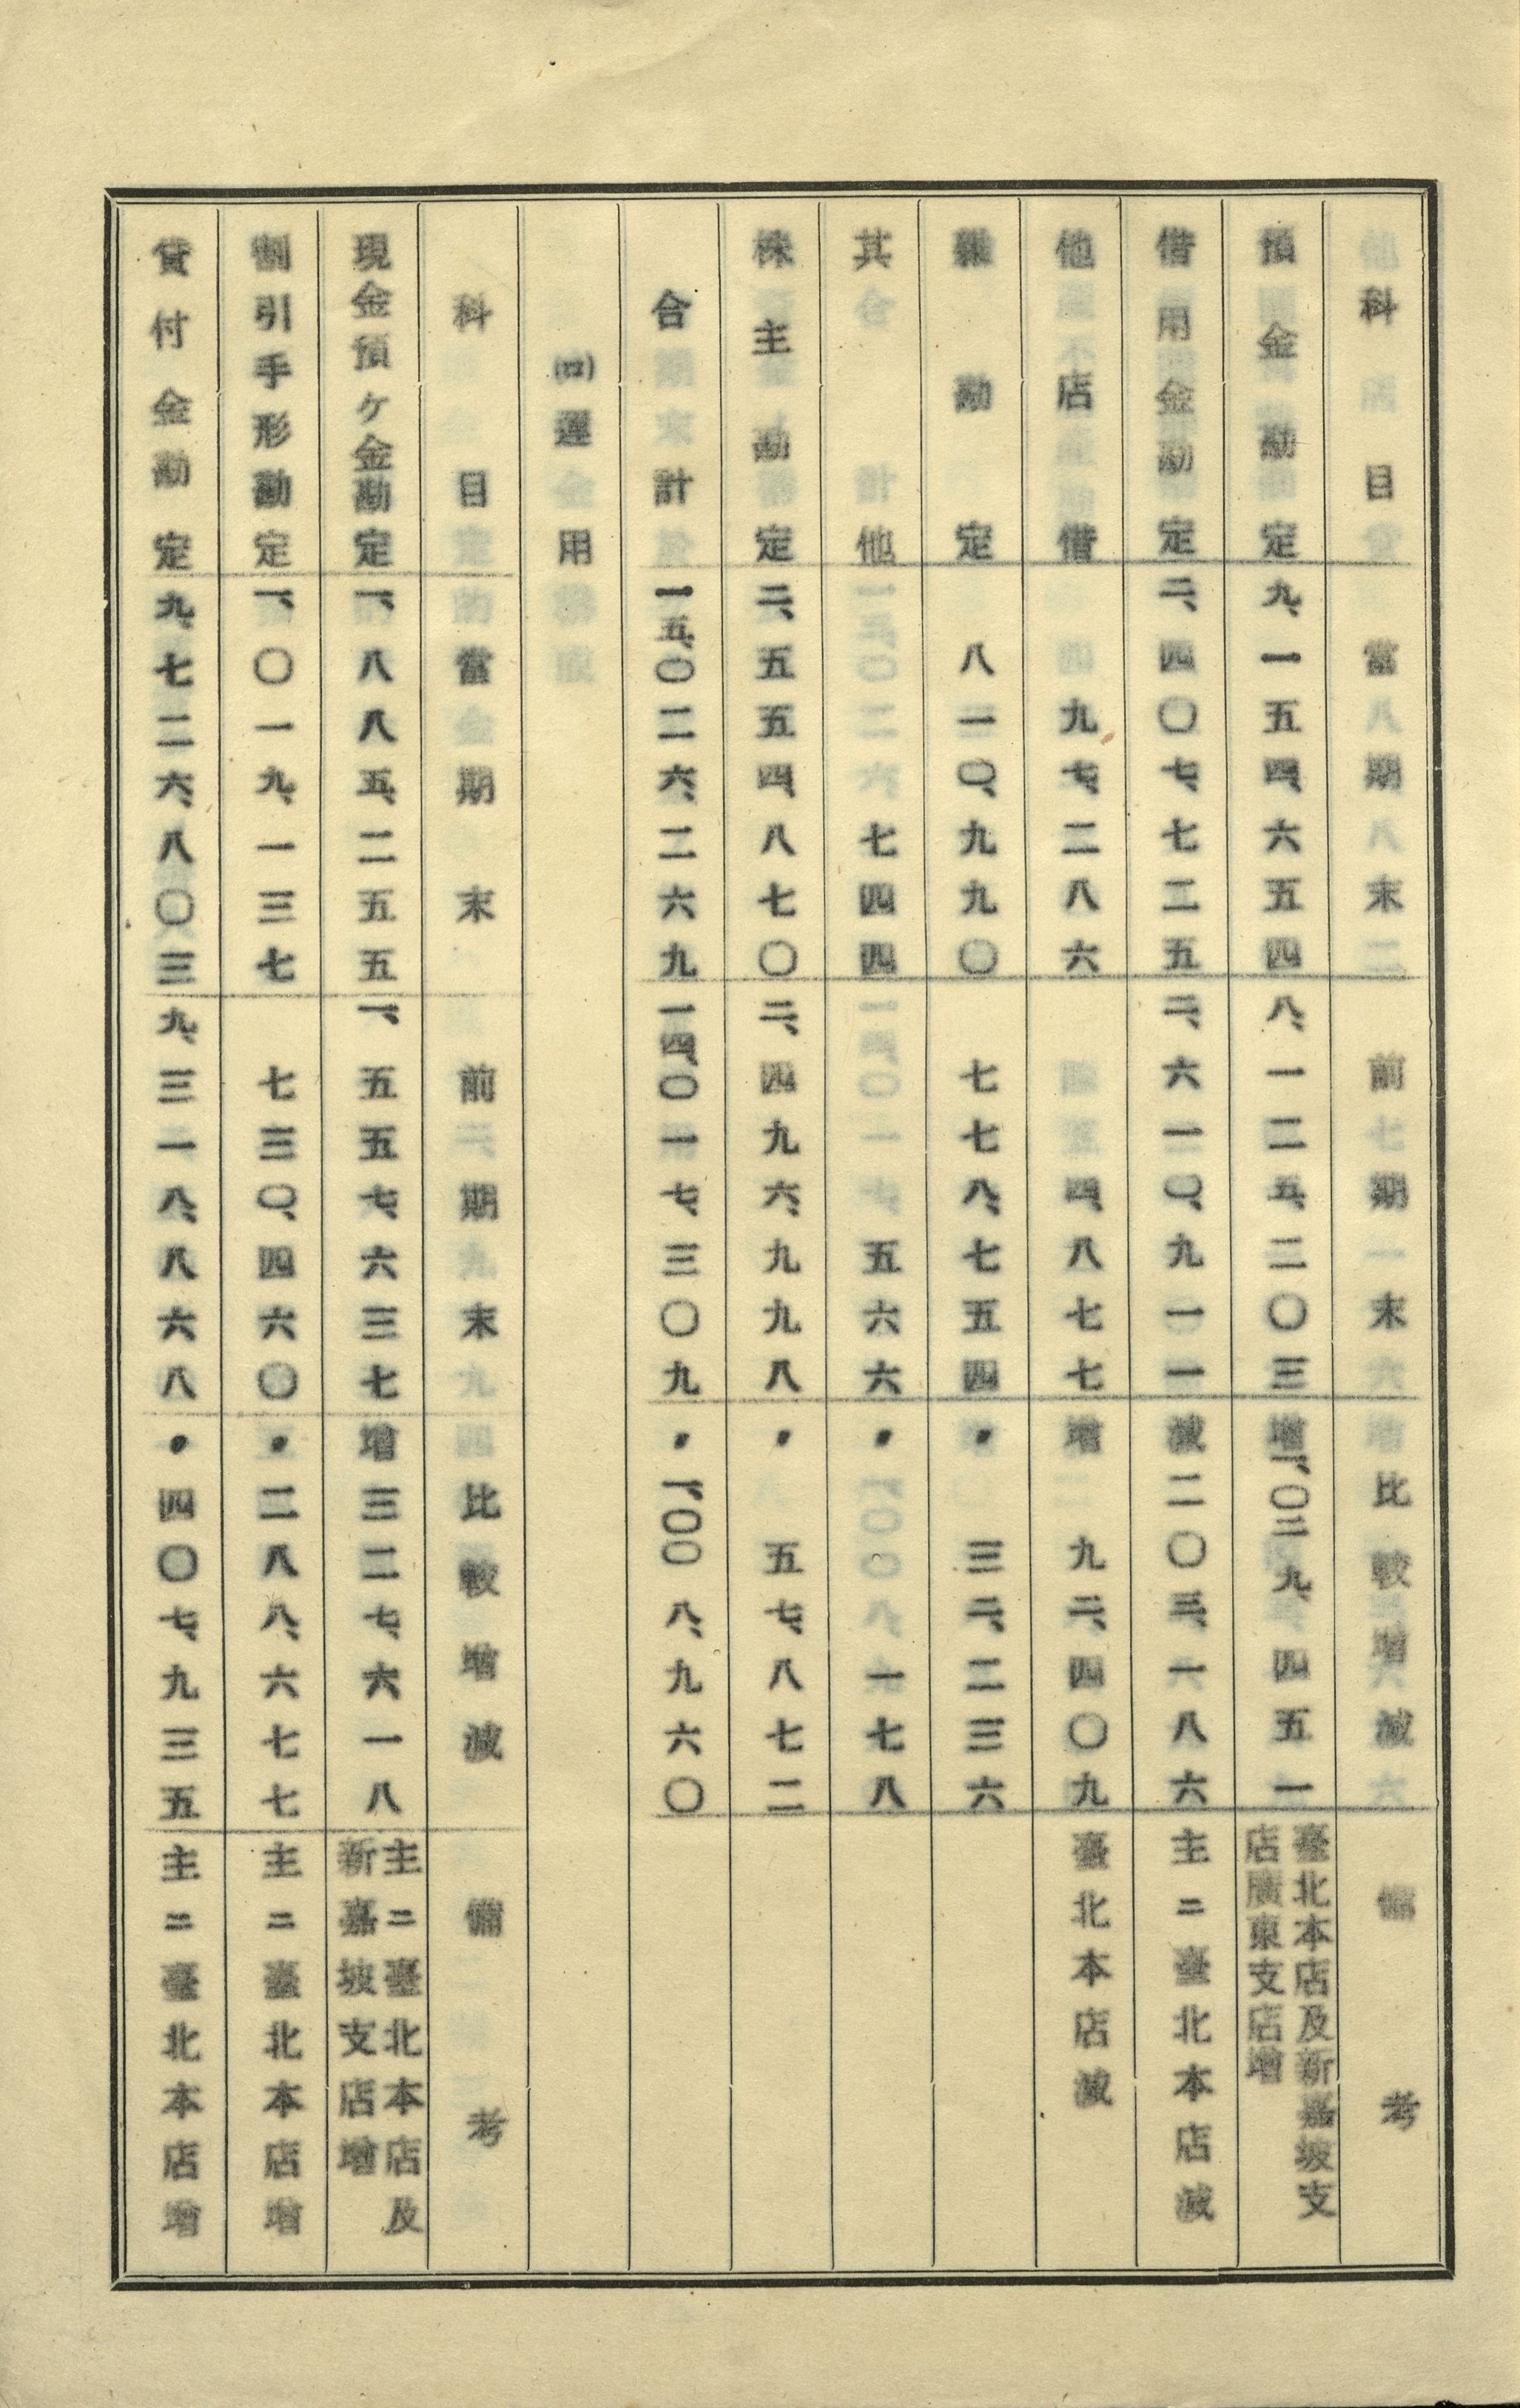 科目 當期末 前期末 比較增減 備考
預金勘定 九、一五四、六五四 八、一二五、二〇三 增一、〇二九、四五一 臺北本店及新嘉坡支
店廣東支店增
借用金勘定 二、四〇七、七二五 二、六一〇、九一一 減二〇三、一八六 主ニ臺北本店減
他店借 九七、二八六 四、八七七 增九二、四〇九 臺北本店減
雜勘定 八一〇、九九〇 七七八、七五四 〃三二、二三六
其他 七四四 五六六 〃一七八
株主勘定 二、五五四、八七〇 二、四九六、九九八 〃五七、八七二
合計 一五、〇二六、二六九 一四、〇一七、三〇九 〃一、〇〇八、九六〇
(ロ)運用
科目 當期末 前期末 比較增減 備考
現金預ケ金勘定 一、八八五、二五五 一、五五七、六三七 增三二七、六一八 主ニ臺北本店及
新嘉坡支店增
割引手形勘定 一、〇一九、一三七 七三〇、四六〇 〃二八八、六七七 主ニ臺北本店增
貸付金勘定 九、七二六、八〇三 九、三一八、八六八 〃四〇七、九三五 主ニ臺北本店增